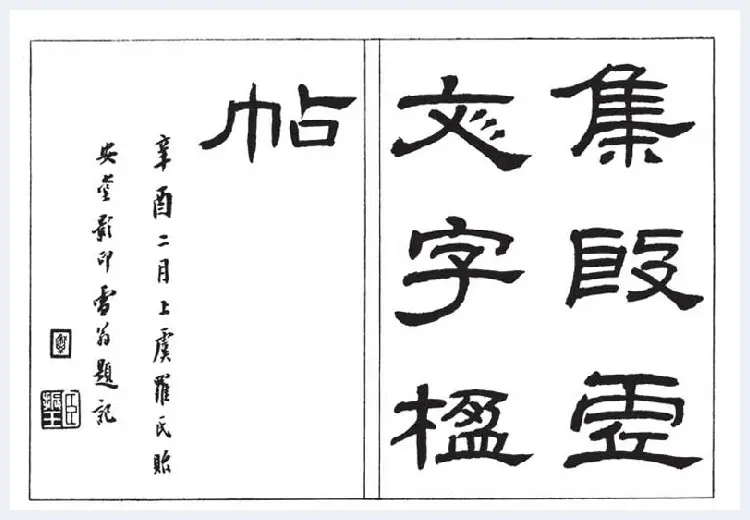 集殷虛
文字楹
帖
辛酉二月上虞羅氏貽
安堂影印雪翁題記